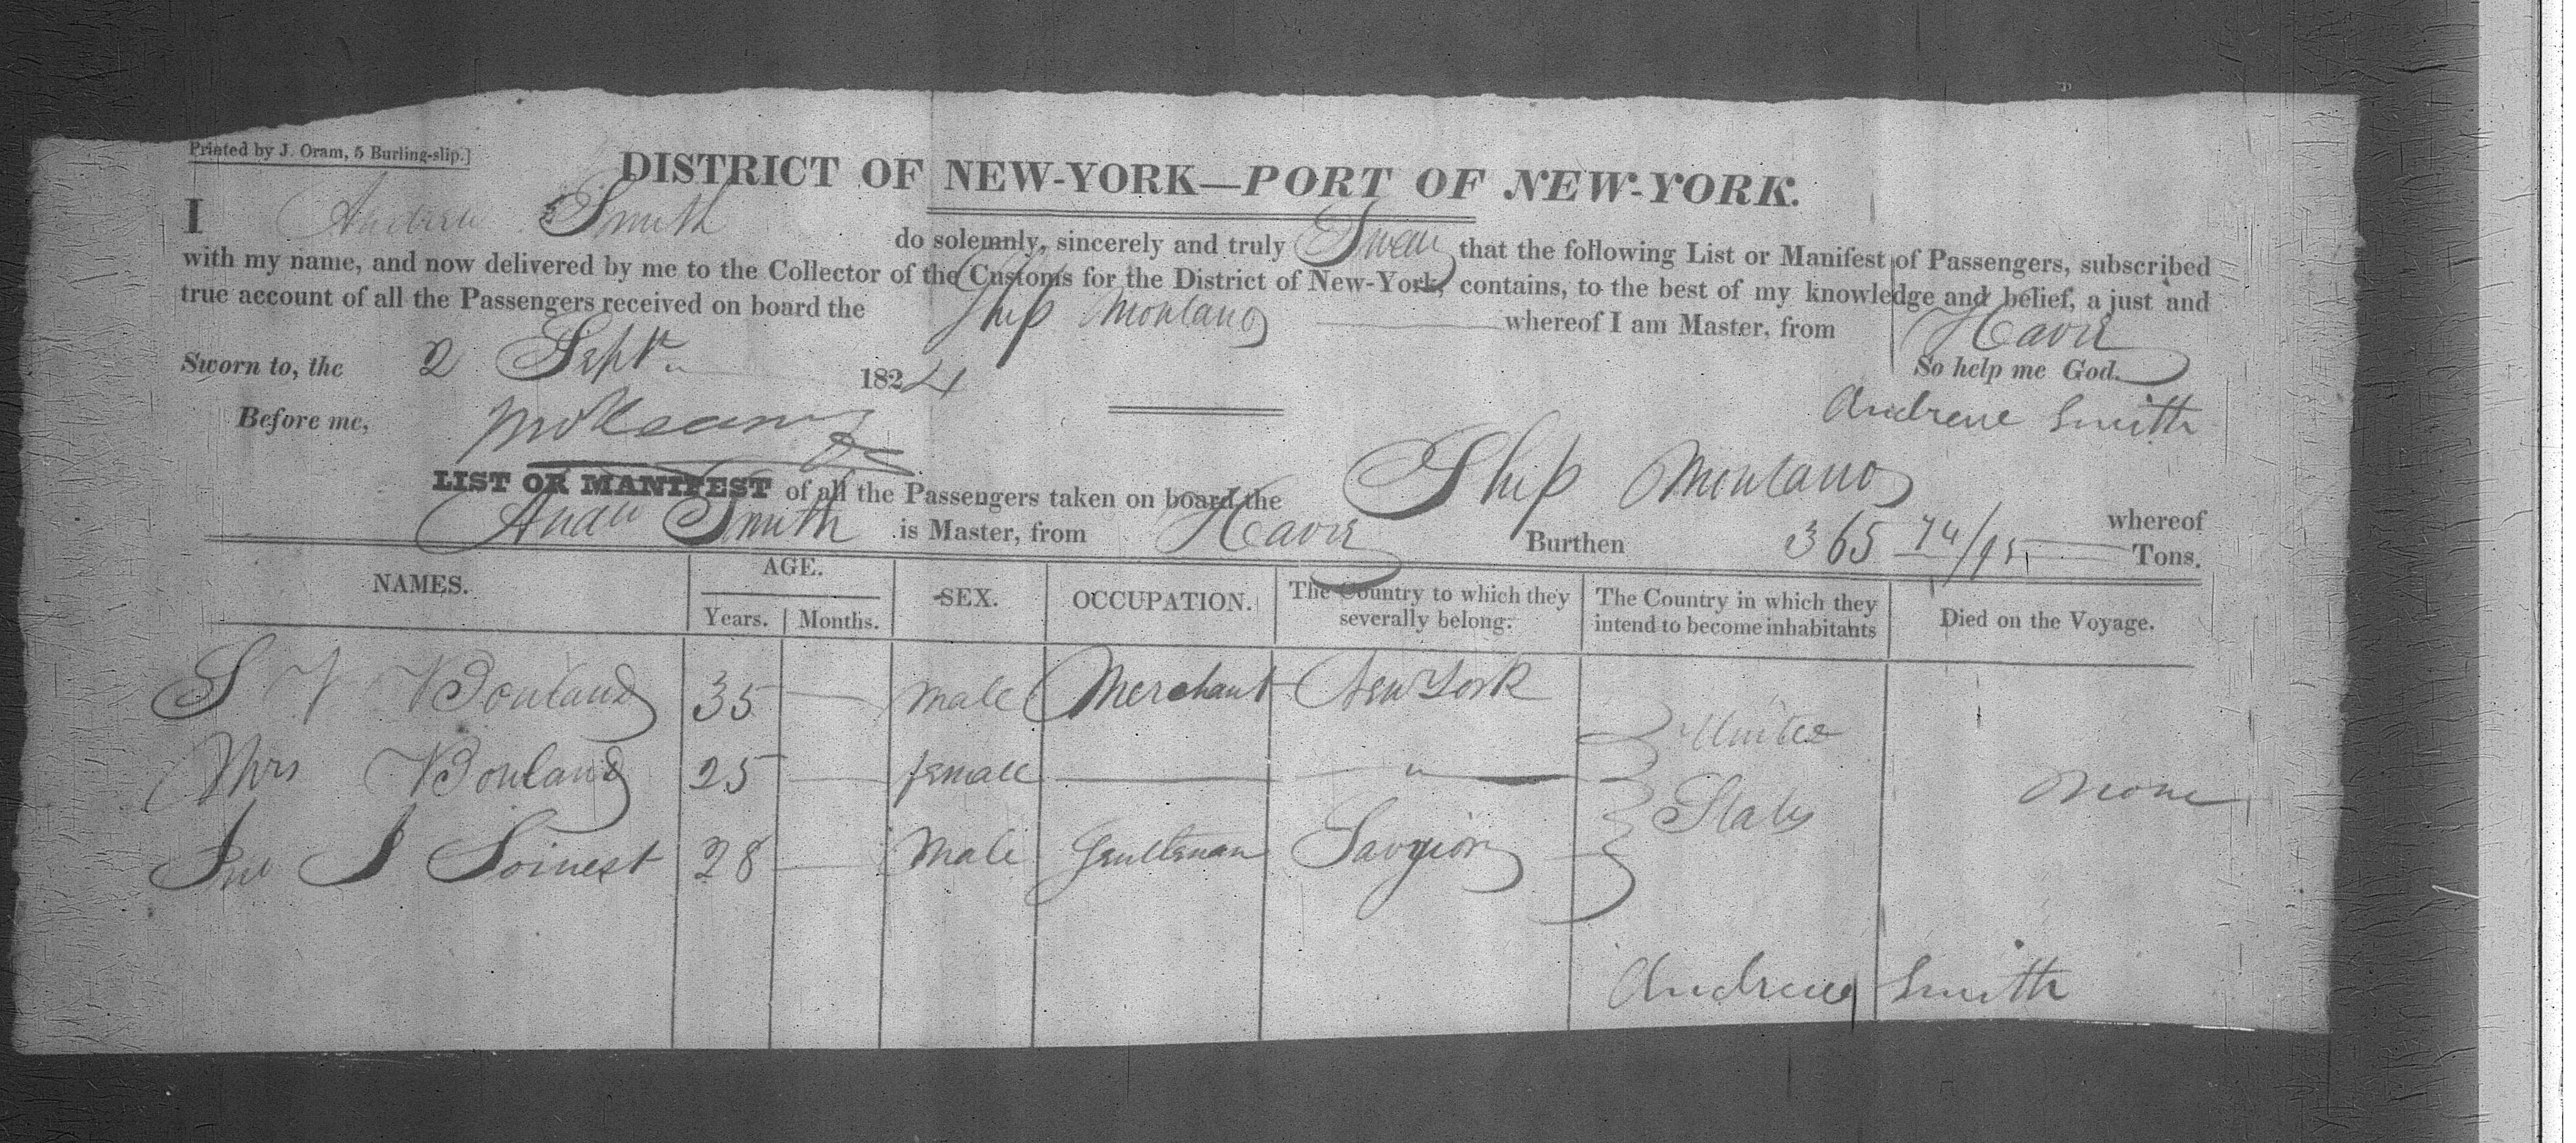 Printed by J. Oram, 5 Burling-slip.]
DISTRICT OF NEW-YORK—PORT OF NEW-YORK.
I Andrew Smith do solemnly, sincerely and truly Swear that the following List or Manifest of Passengers, subscribed
with my name, and now delivered by me to the Collector of the Customs for the District of New-York, contains, to the best of my knowledge and belief, a just and
true account of all the Passengers received on board the Ship Montano whereof I am Master, from Havre
Sworn to, the 2 Sept. 1824 So help me God.
Before me, Andrew Smith
LIST OR MANIFEST of all the Passengers taken on board the Ship Montano whereof
Andw Smith is Master, from Havre Burthen 365 74/95 Tons.
NAMES. AGE. Years. Months. SEX. OCCUPATION. The Country to which they severally belong. The Country in which they intend to become inhabitants Died on the Voyage.
S V 35 Male Merchant New York United
Mrs 25 female " None
J 28 Male Gentleman States
Andrew Smith